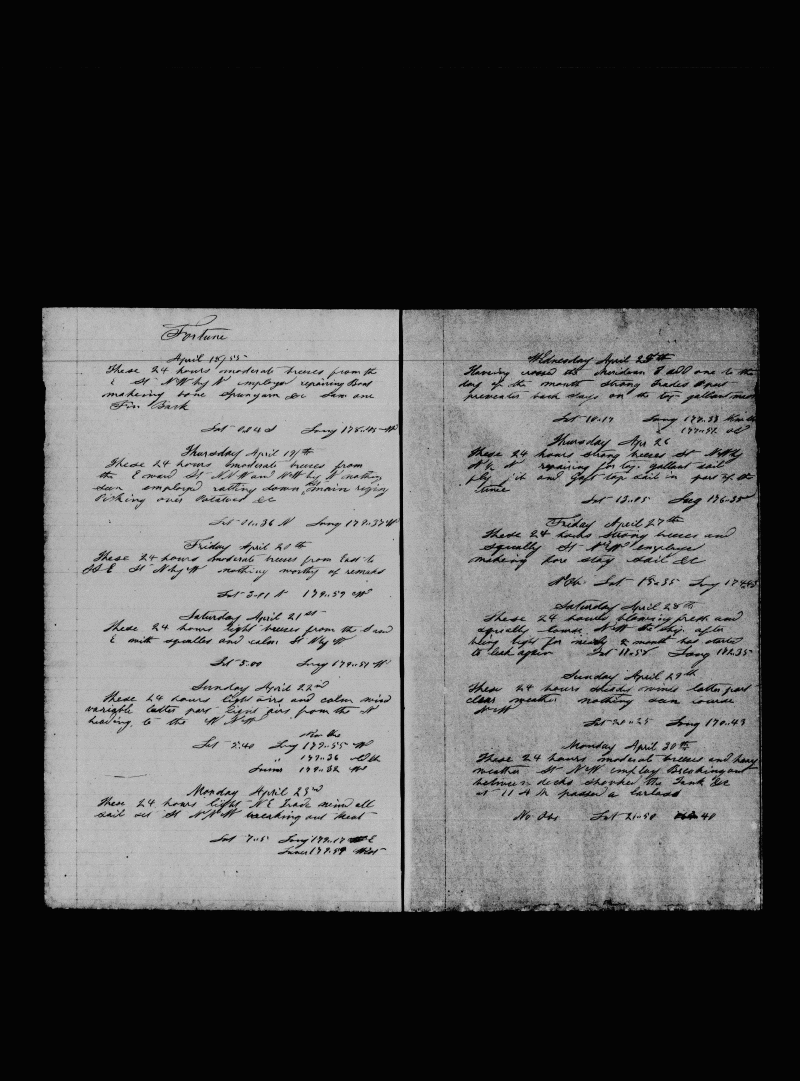 Fortune
April 18/55
These 24 hours moderate breeses from the
E St NW by N employed repairing Boat
makeing some Spunyarn &c Saw one
Fin Back
Lat 0..24 S Long 178..45 W
Thursday April 19th
These 24 hours moderate breeses from
the E ward St NNW and NW by N nothing
seen employed ratling down main riging
Picking over Potatoes &c
Lat 01..36 N Long 179..37 W
Friday April 20th
These 24 hours moderate breeses from East to
SE St N by W nothing worthy of remark
Lat 3..01 N 179..59 W
Saturday April 21st
These 24 hours light breeses from the S and
E with squalls and calm St N by W
Lat 5..00 Long 179..51 W
Sunday April 22nd
These 24 hours light airs and calm wind
variable latter part light airs from the N
heading to the W NW
Lat 5.40 Long 179..55 W
" 179..36
179..32 W
Monday April 23rd
These 24 hours light NE Trade wind all
sail set St NNW breaking out bread
Lat 7..5 Long 179..17 E
179..59 West
Wednesday April 25th
Haveing crossed the Meridean I add one to the
day of the month strong trades
preventer back stays on the top gallant mast
Lat 10.17 Long 177..33
177..51
Thursday Apr 26
These 24 hours strong breeses St NW by
N & N repairing for top gallant sail
fly jib and Gaft top sail in part of the
time
Lat 13..05 Long 176.35
Friday April 27th
These 24 hours strong breeses and
squally St NW employed
makeing fore stay sail &c
No Ob. Lat 15..35 Long 174.45
Saturday April 28th
These 24 hours blowing fresh and
squally NW the Ship after
being tight for nearly a month has started
to leak again Lat 18.58 Long 172.35
Sunday April 29th
These 24 hours steady winds latter part
clear weather nothing seen course
NW
Lat 20..25 Long 170.43
Monday April 30th
These 24 hours moderate breeses and hazy
weather St NW employ Breaking out
between decks the Tank &c
at 11 A M passed a
No Obs Lat 21..50 40